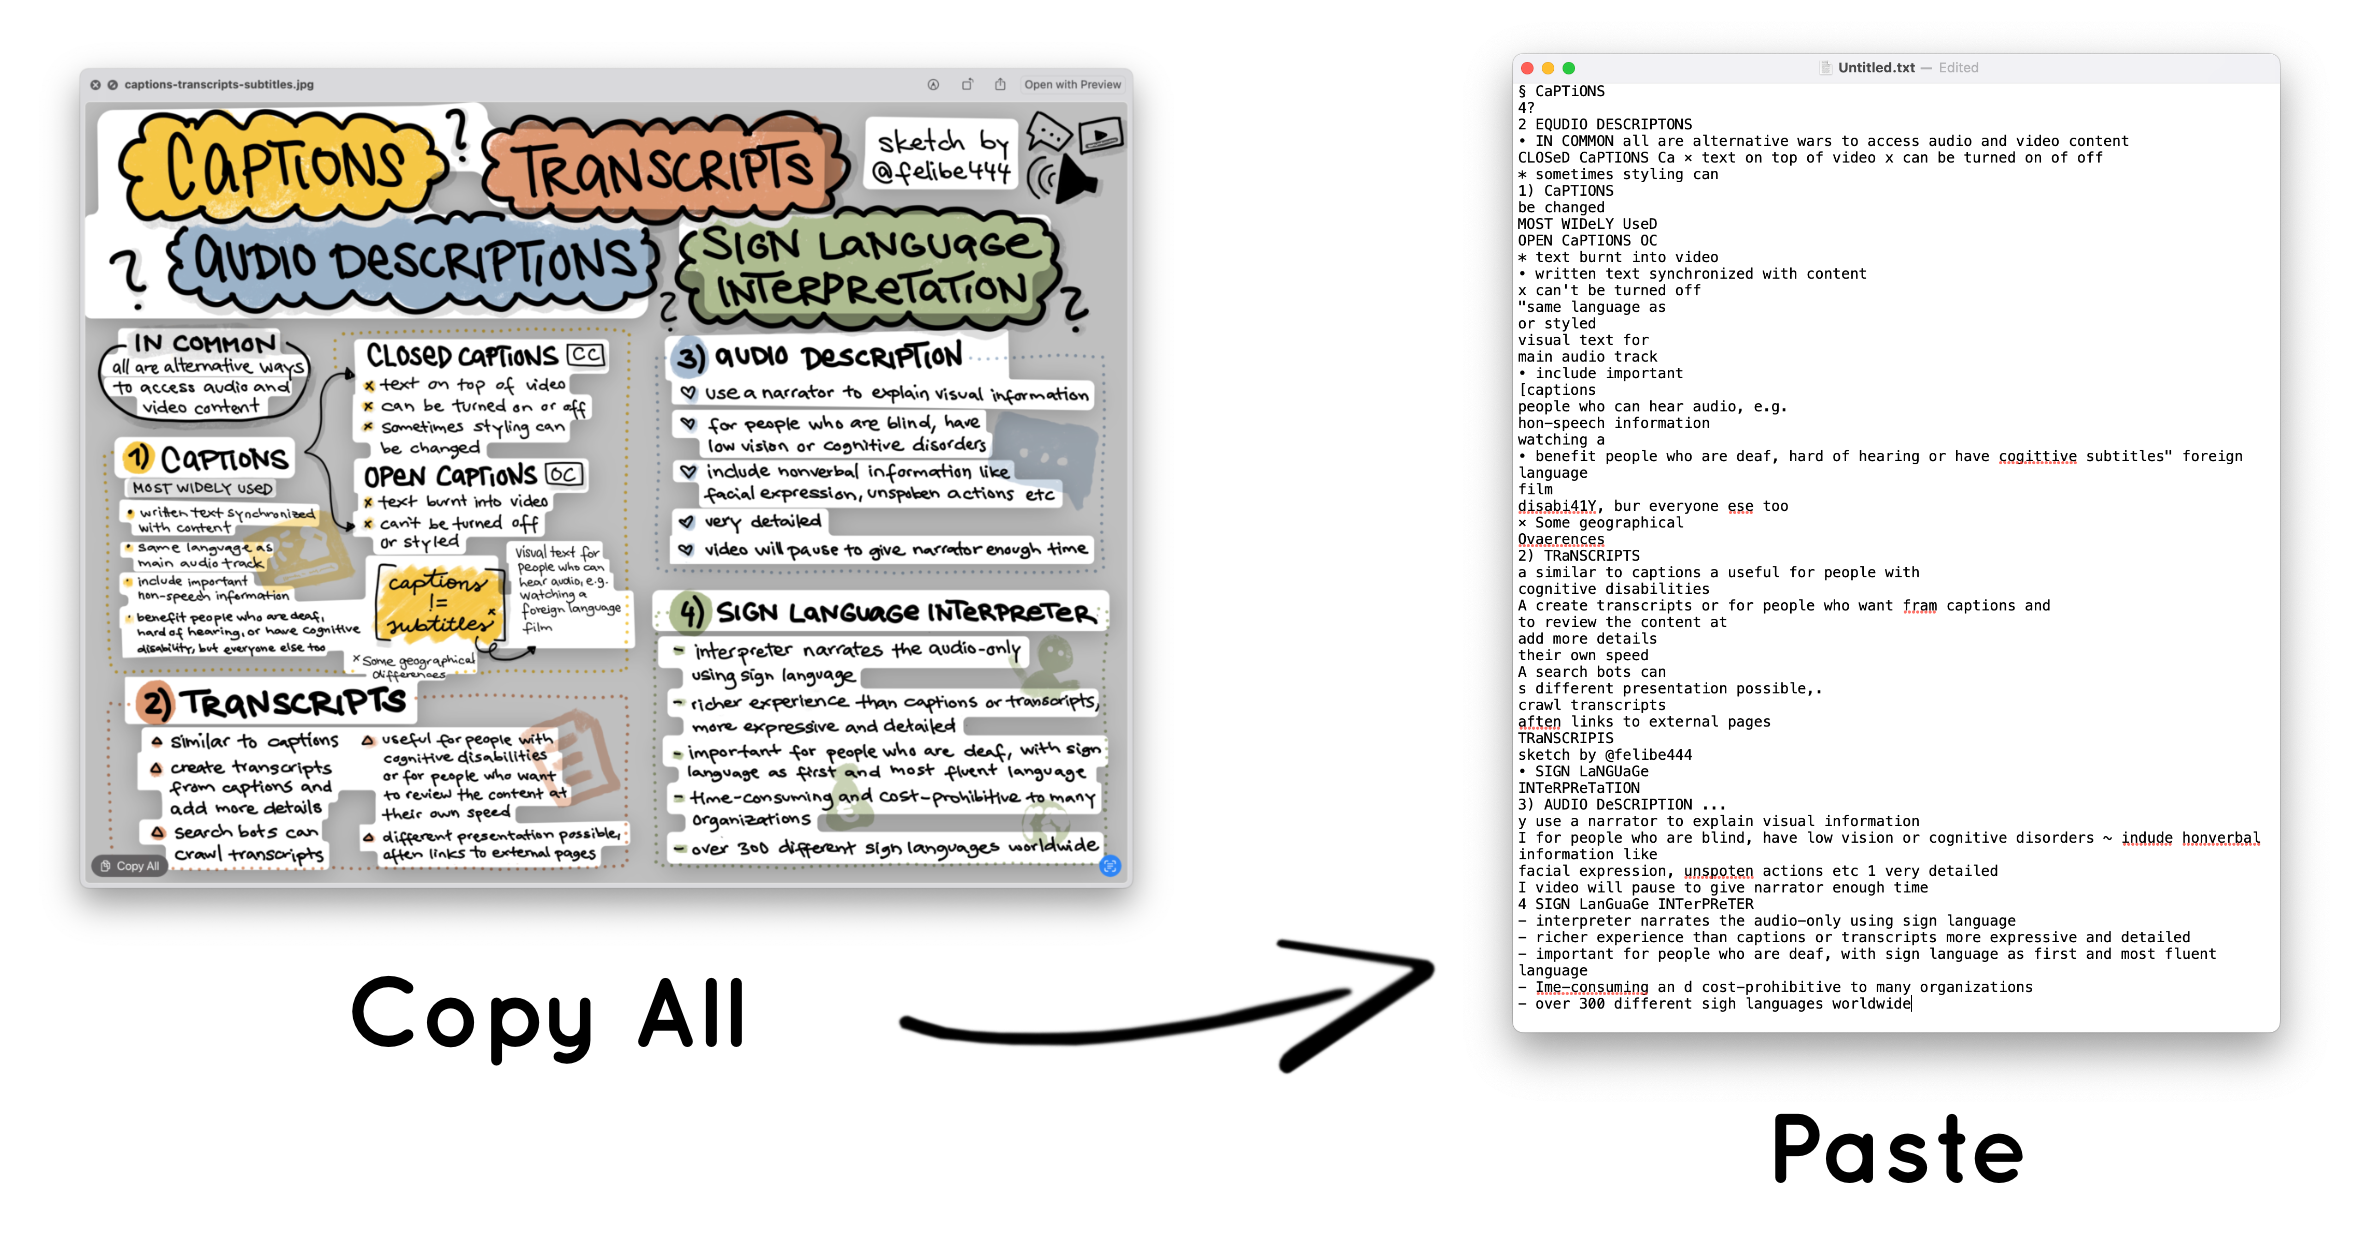 captions-transcripts-subtitles.jpg
Open with Preview
CAPTIONS
?
TRANSCRIPTS
sketch by
@felibe444
?
AUDIO DESCRIPTIONS
?
SIGN LANGUAGE
INTERPRETATION
?
IN COMMON
all are alternative ways
to access audio and
video content
1) CAPTIONS
MOST WIDELY USED
• written text synchronized
with content
• same language as
main audio track
• include important
non-speech information
• benefit people who are deaf,
hard of hearing, or have cognitive
disability, but everyone else too
CLOSED CAPTIONS CC
x text on top of video
x can be turned on or off
x sometimes styling can
be changed
OPEN CAPTIONS OC
x text burnt into video
x can't be turned off
or styled
captions
!=
subtitles x
visual text for
people who can
hear audio, e.g.
watching a
foreign language
film
x Some geographical
differences
2) TRANSCRIPTS
△ similar to captions
△ create transcripts
from captions and
add more details
△ search bots can
crawl transcripts
△ useful for people with
cognitive disabilities
or for people who want
to review the content at
their own speed
△ different presentation possible,
often links to external pages
3) AUDIO DESCRIPTION
♡ use a narrator to explain visual information
♡ for people who are blind, have
low vision or cognitive disorders
♡ include nonverbal information like
facial expression, unspoken actions etc
♡ very detailed
♡ video will pause to give narrator enough time
4) SIGN LANGUAGE INTERPRETER
- interpreter narrates the audio-only
using sign language
- richer experience than captions or transcripts,
more expressive and detailed
- important for people who are deaf, with sign
language as first and most fluent language
- time-consuming and cost-prohibitive to many
organizations
- over 300 different sign languages worldwide
Copy All
Copy All
Untitled.txt — Edited
§ CaPTiONS
4?
2 EQUDIO DESCRIPTONS
• IN COMMON all are alternative wars to access audio and video content
CLOSeD CaPTIONS Ca × text on top of video x can be turned on of off
* sometimes styling can
1) CaPTIONS
be changed
MOST WIDeLY UseD
OPEN CaPTIONS OC
* text burnt into video
• written text synchronized with content
x can't be turned off
"same language as
or styled
visual text for
main audio track
• include important
[captions
people who can hear audio, e.g.
hon-speech information
watching a
• benefit people who are deaf, hard of hearing or have cogittive subtitles" foreign
language
film
disabi41Y, bur everyone ese too
× Some geographical
Ovaerences
2) TRaNSCRIPTS
a similar to captions a useful for people with
cognitive disabilities
A create transcripts or for people who want fram captions and
to review the content at
add more details
their own speed
A search bots can
s different presentation possible,.
crawl transcripts
aften links to external pages
TRaNSCRIPIS
sketch by @felibe444
• SIGN LaNGUaGe
INTerPReTaTION
3) AUDIO DeSCRIPTION ...
y use a narrator to explain visual information
I for people who are blind, have low vision or cognitive disorders ~ indude honverbal
information like
facial expression, unspoten actions etc 1 very detailed
I video will pause to give narrator enough time
4 SIGN LanGuaGe INTerPReTER
– interpreter narrates the audio-only using sign language
– richer experience than captions or transcripts more expressive and detailed
– important for people who are deaf, with sign language as first and most fluent
language
– Ime-consuming an d cost-prohibitive to many organizations
– over 300 different sigh languages worldwide
Paste